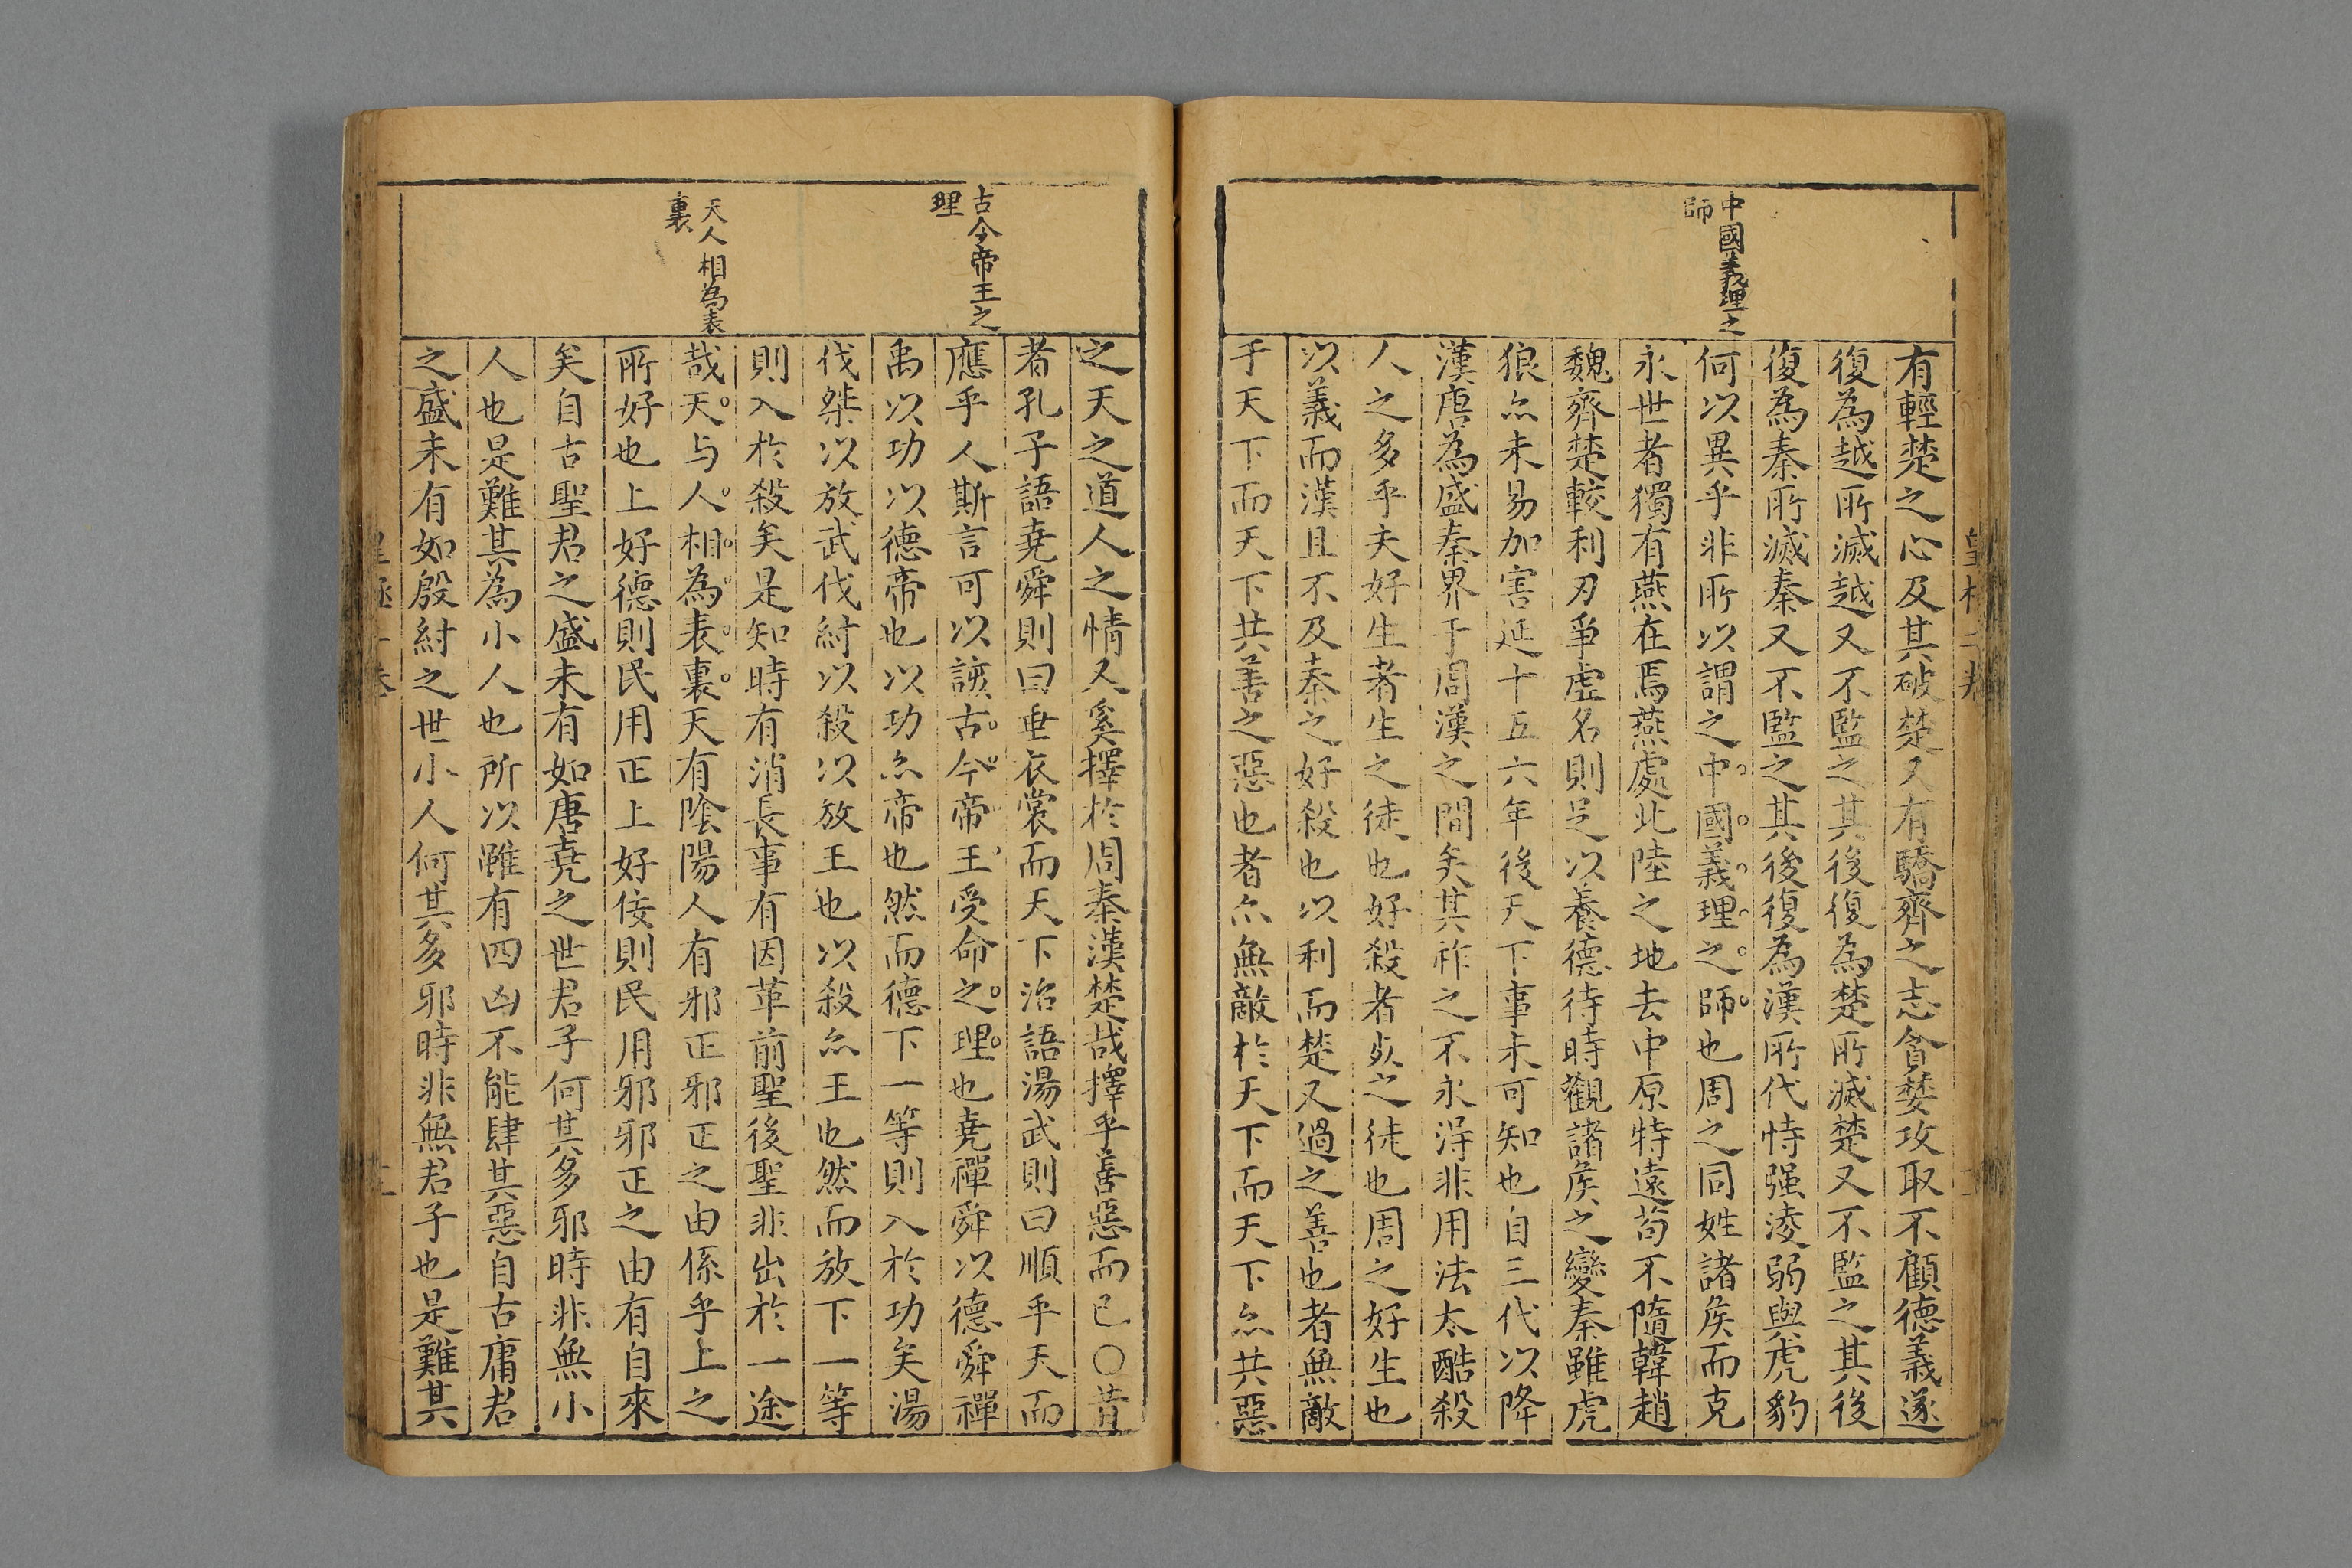 中國義理之
師
有輕楚之心及其破楚又有驕齊之志貪婪攻取不顧德義遂
復為越所滅越又不監之其後復為楚所滅楚又不監之其後
復為秦所滅秦又不監之其後復為漢所代恃强淩弱與虎豹
何以異乎非所以謂之中國義理之師也周之同姓諸侯而克
永世者獨有燕在焉燕處北陸之地去中原特遠苟不隨韓趙
魏齊楚較利刃爭虛名則足以養德待時觀諸侯之變秦雖虎
狼亦未易加害延十五六年後天下事未可知也自三代以降
漢唐為盛秦界于周漢之間矣其祚之不永得非用法太酷殺
人之多乎夫好生者生之徒也好殺者死之徒也周之好生也
以義而漢且不及秦之好殺也以利而楚又過之善也者無敵
于天下而天下共善之惡也者亦無敵於天下而天下亦共惡
古今帝王之
理
天人相為表
裏
之天之道人之情又奚擇於周秦漢楚哉擇乎善惡而已○昔
者孔子語堯舜則曰垂衣裳而天下治語湯武則曰順乎天而
應乎人斯言可以該古今帝王受命之理也堯禪舜以德舜禪
禹以功以德帝也以功亦帝也然而德下一等則入於功矣湯
伐桀以放武伐紂以殺以放王也以殺亦王也然而放下一等
則入於殺矣是知時有消長事有因革前聖後聖非出於一途
哉天与人相為表裏天有陰陽人有邪正邪正之由係乎上之
所好也上好德則民用正上好佞則民用邪邪正之由有自來
矣自古聖君之盛未有如唐堯之世君子何其多邪時非無小
人也是難其為小人也所以雖有四凶不能肆其惡自古庸君
之盛未有如殷紂之世小人何其多邪時非無君子也是難其